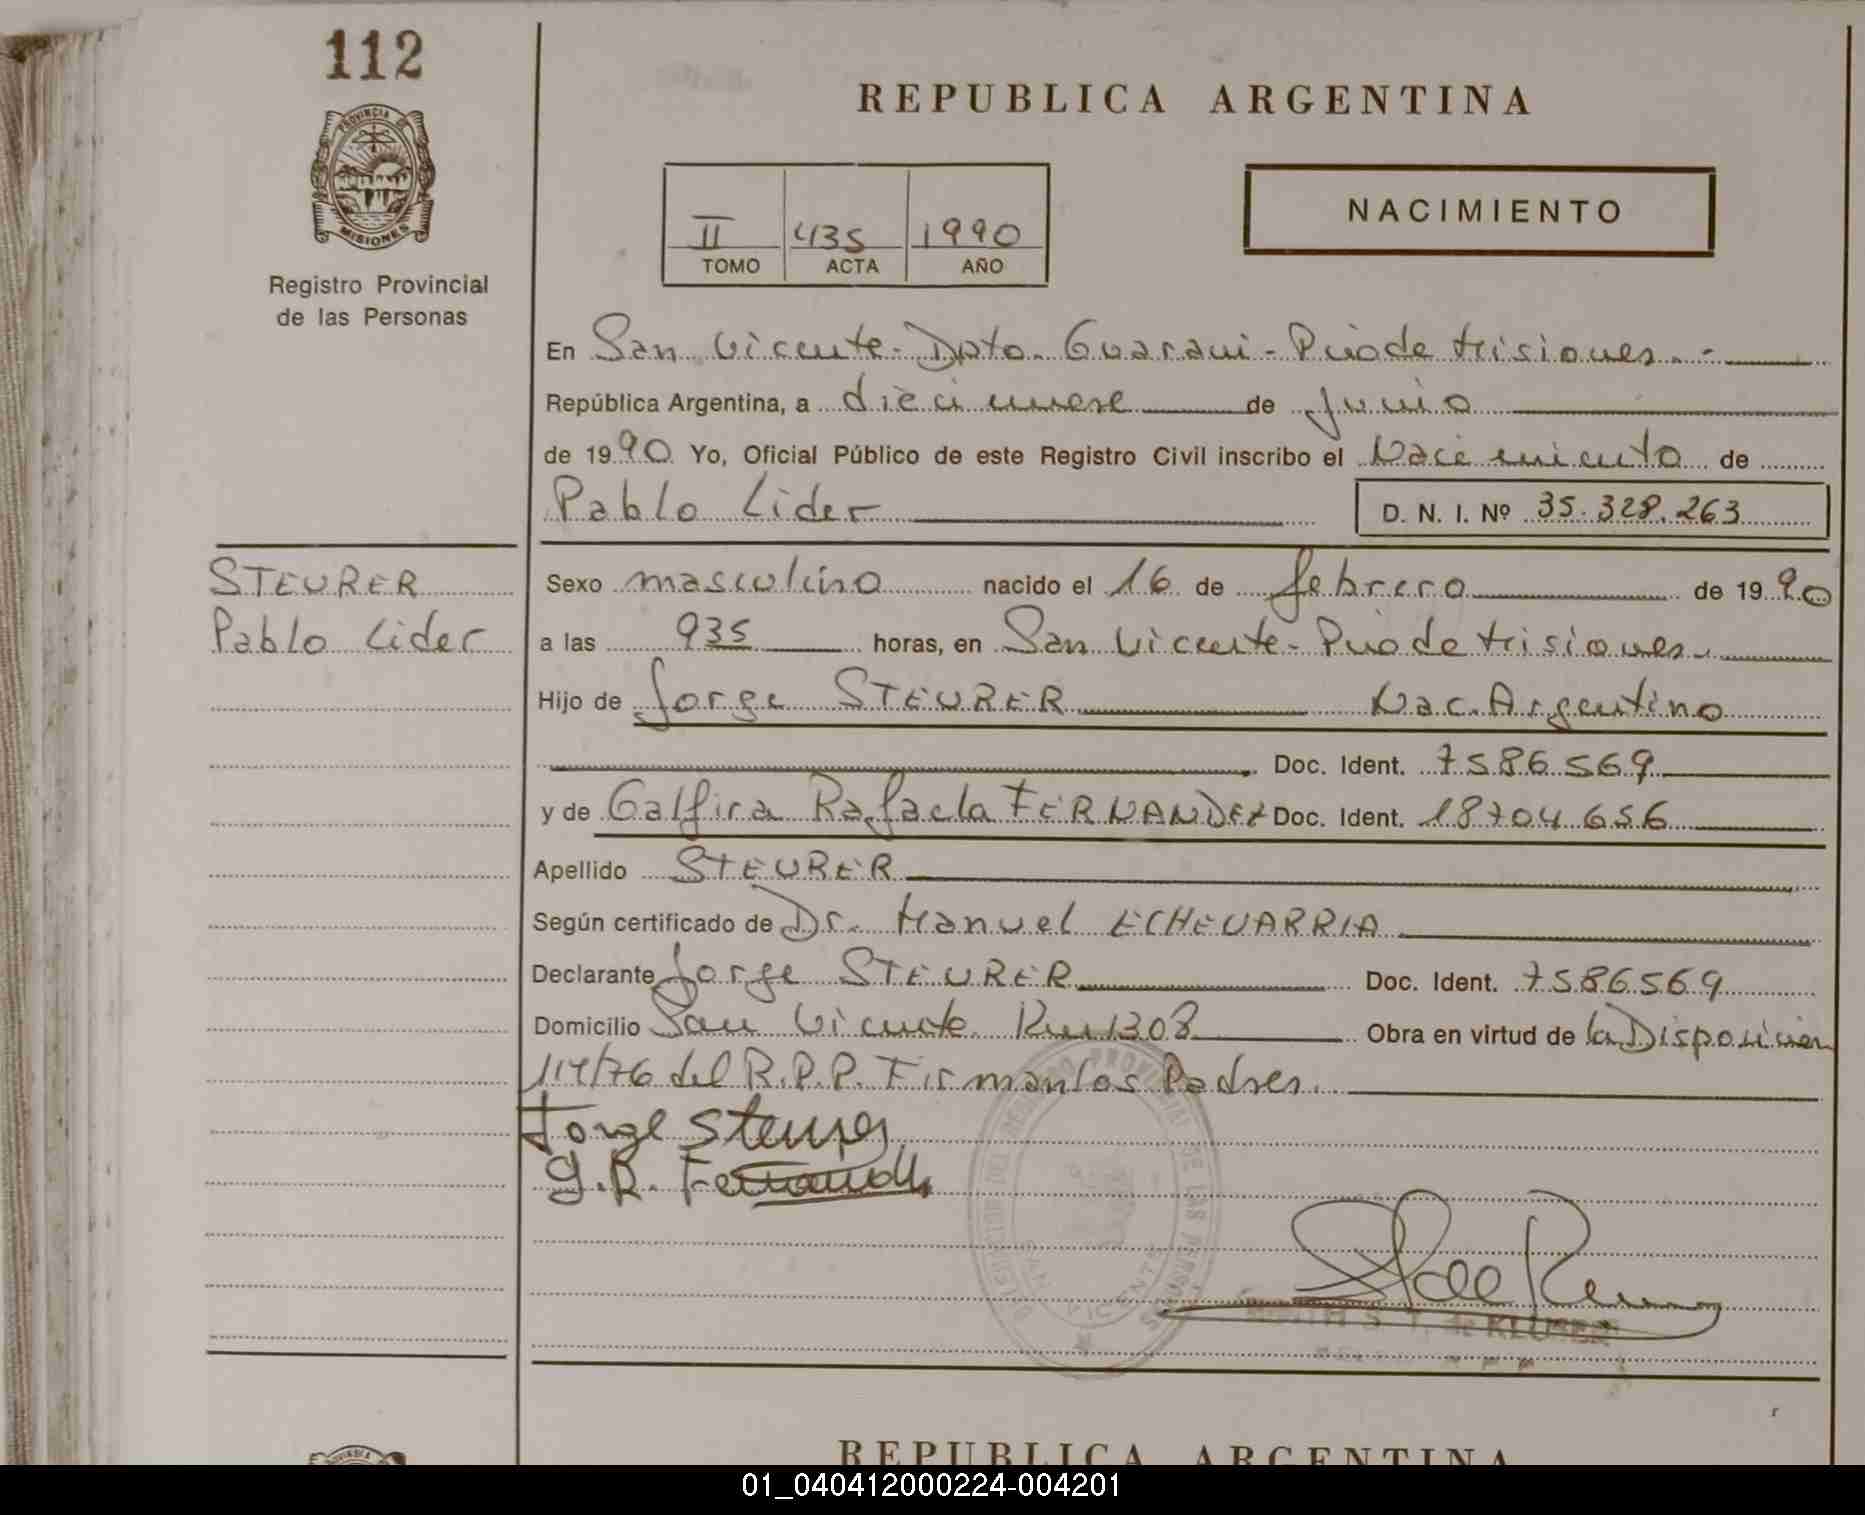 112
PROVINCIA DE
MISIONES
Registro Provincial
de las Personas
REPUBLICA ARGENTINA
II 435 1990
TOMO ACTA AÑO
NACIMIENTO
En San Vicente - Dpto. Guarani - Pciade Misiones. -
República Argentina, a diecinueve de Junio
de 1990 Yo, Oficial Público de este Registro Civil inscribo el Nacimiento de
Pablo Lider
D. N. I. Nº 35.328.263
STEURER
Pablo Lider
Sexo masculino nacido el 16 de febrero de 1990
a las 935 horas, en San Vicente - Pciade Misiones.
Hijo de Jorge STEURER Nac. Argentino
Doc. Ident. 7586569
y de Galfira Rafaela FERNANDEZ Doc. Ident. 18704656
Apellido STEURER
Según certificado de Dr. Manuel ECHEVARRIA
Declarante Jorge STEURER Doc. Ident. 7586569
Domicilio San Vicente Km 1308 Obra en virtud de la Disposicion
114/76 del R.P.P. Firman los Padres.
Jorge Steurer
G.R. Fernandez
SAN VICENTE
REPUBLICA ARGENTINA
01_040412000224-004201